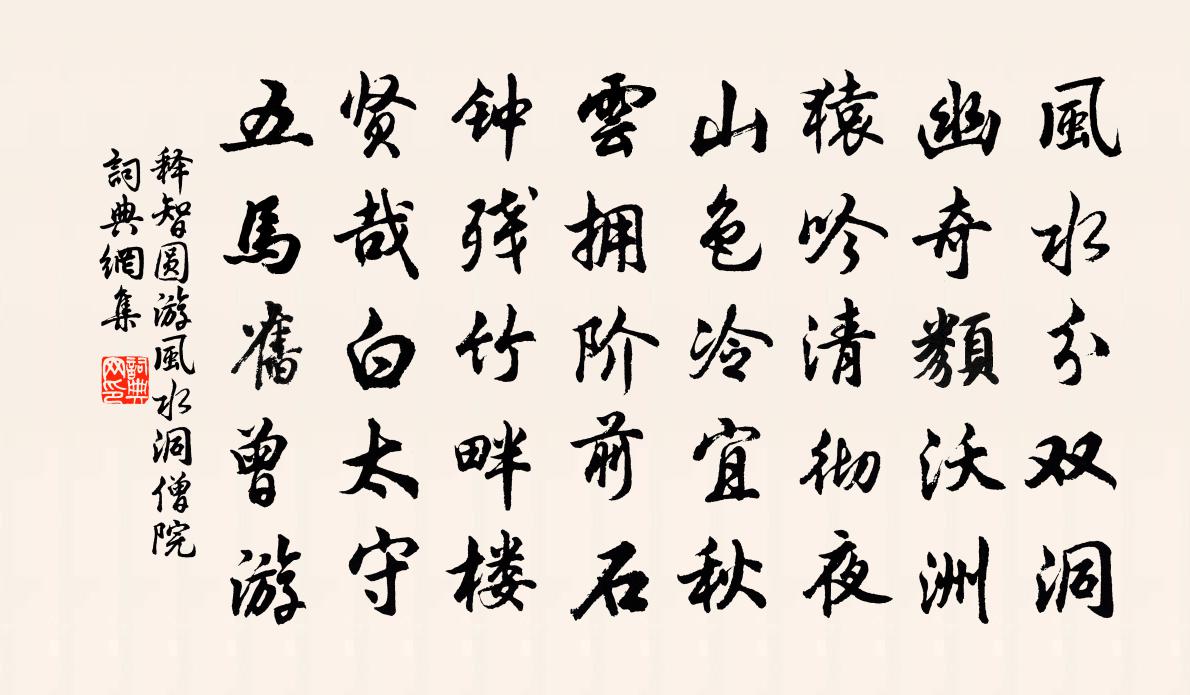 風水分双洞
幽奇類沃洲
猿吟清彻夜
山色冷宜秋
雲拥阶前石
钟残竹畔楼
贤哉白太守
五馬舊曾游
释智圆游風水洞僧院
詞典網集
詞典网印